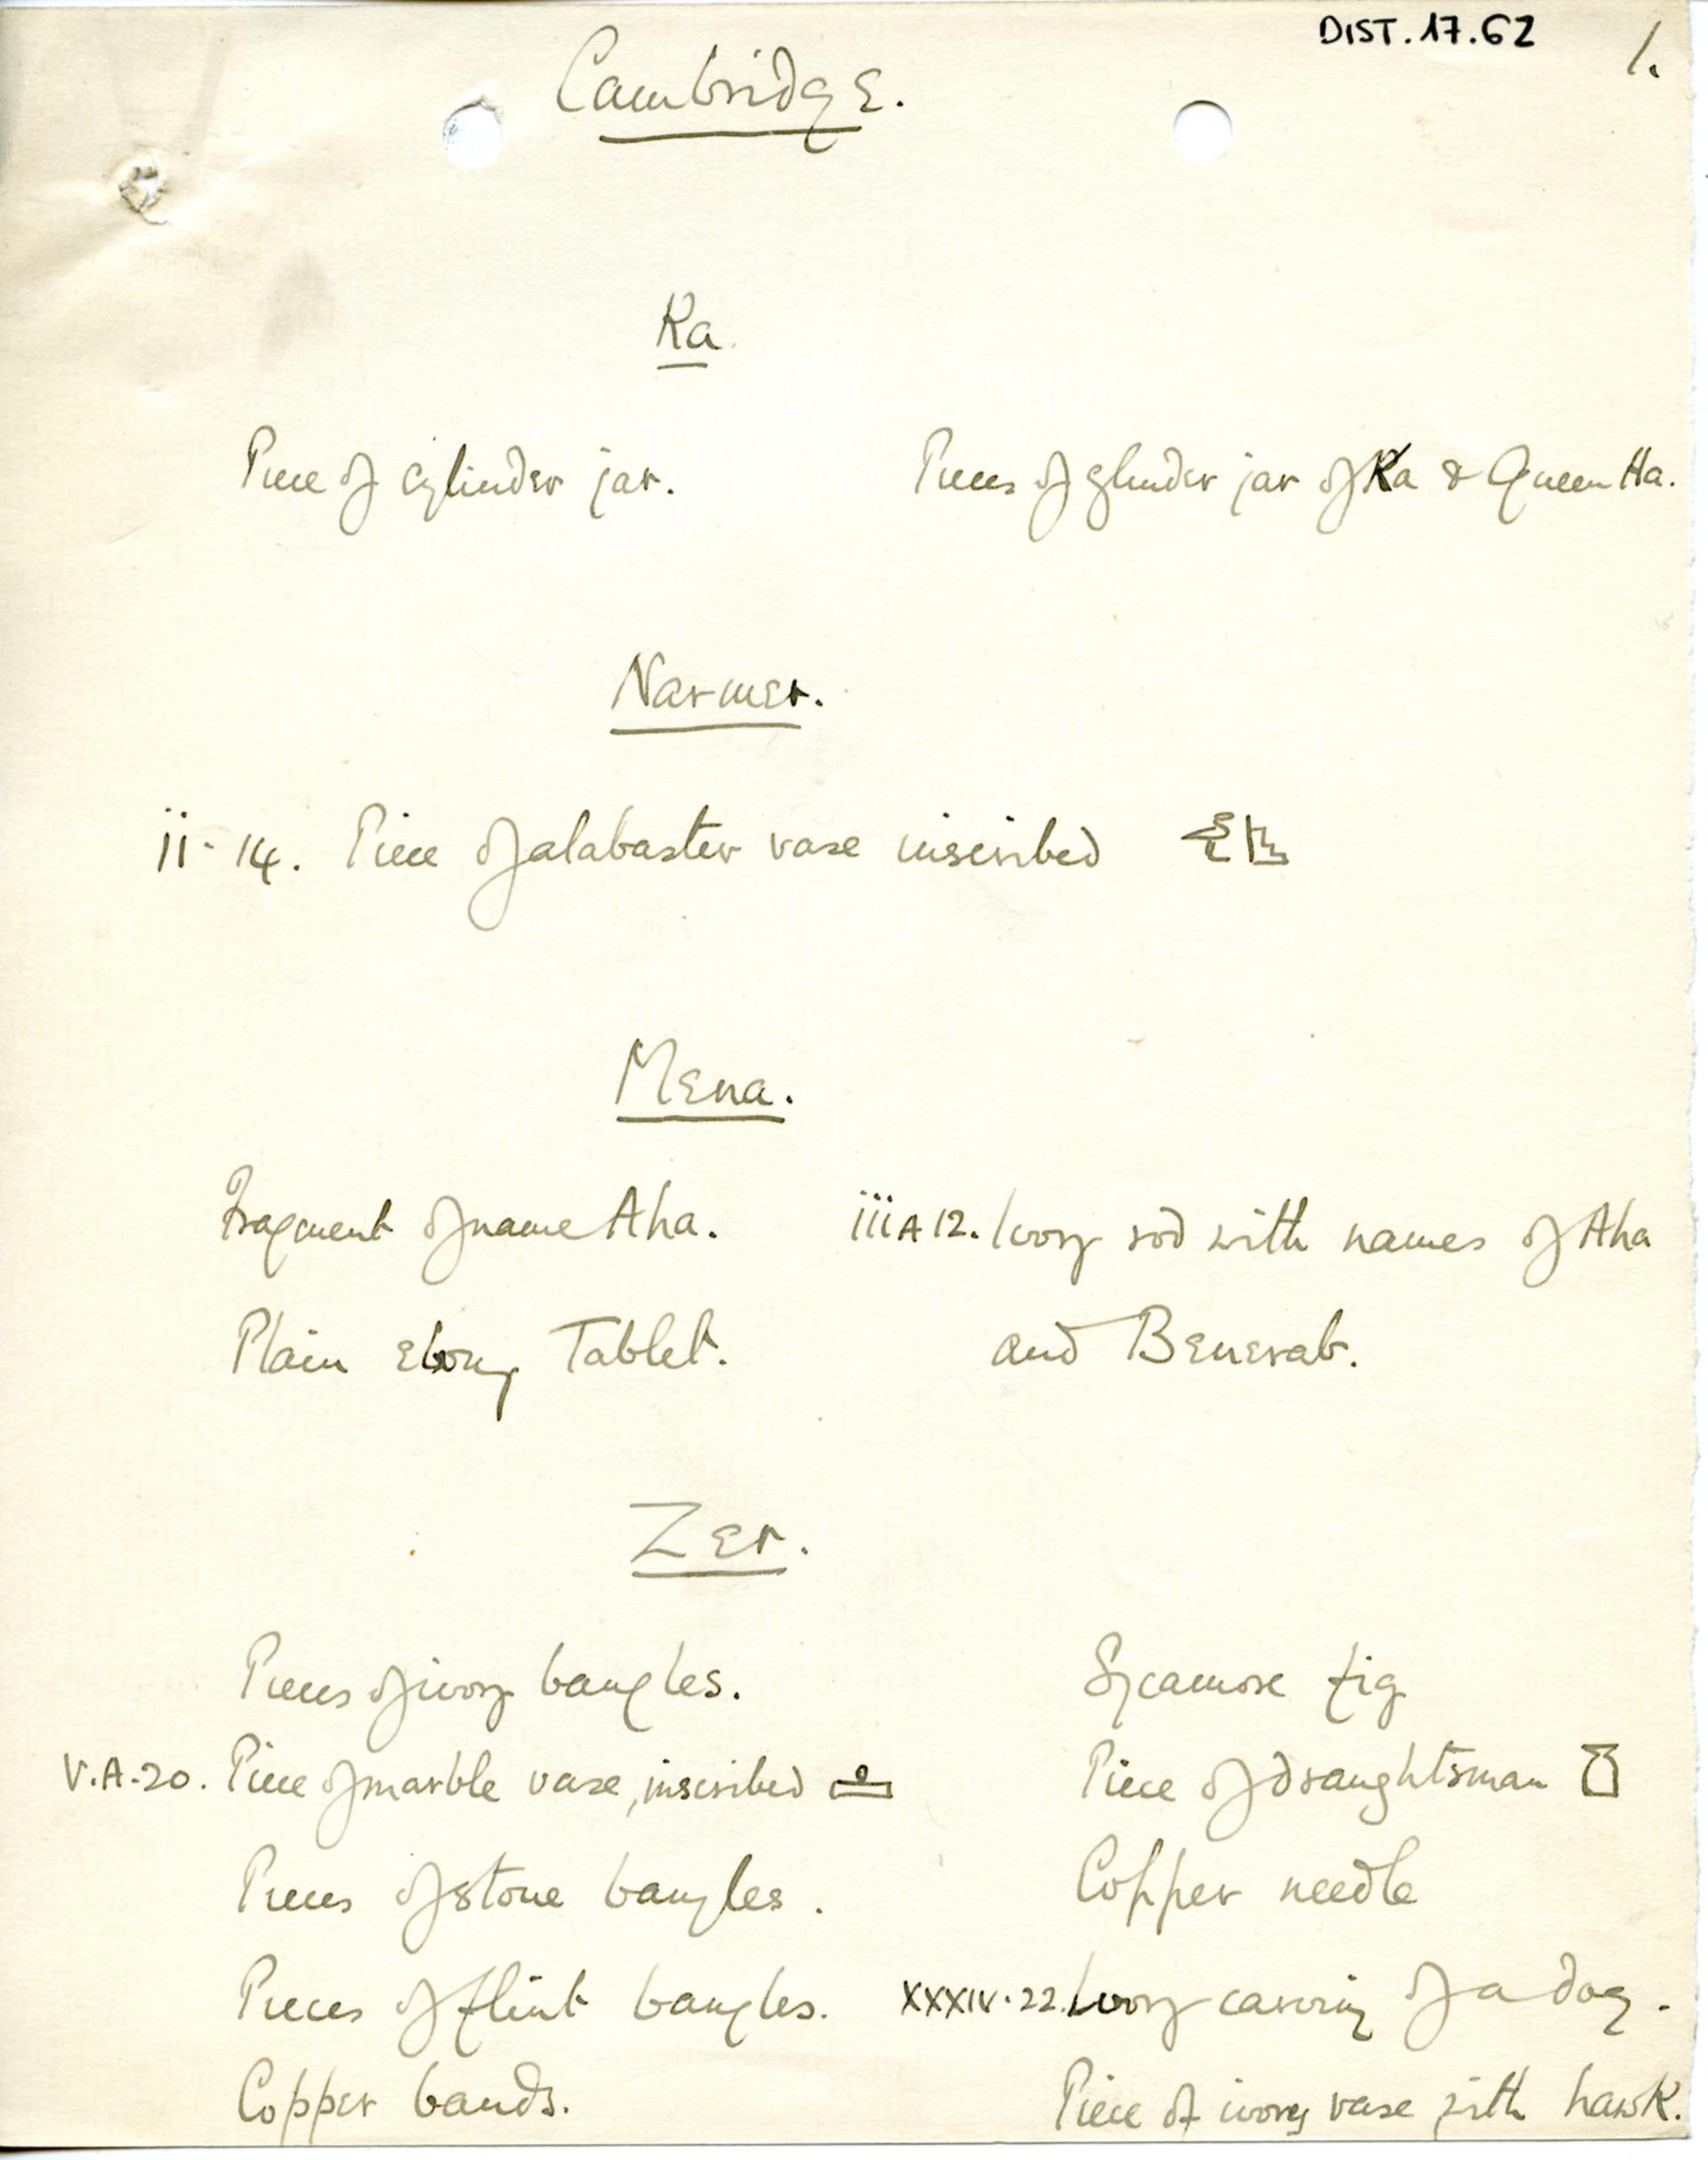 DIST. 17.62
1.
Cambridge.
Ka.
Piece of cylinder jar.
Pieces of cylinder jar of Ka & Queen Ha.
Narmer.
ii - 14. Piece of alabaster vase inscribed
Mena.
Fragment of name Aha.
iii A 12. Ivory rod with names of Aha
Plain ebony Tablet.
and Benerab.
Zer.
Pieces of ivory bangles.
Sycamore fig
V.A.20. Piece of marble vase, inscribed
Piece of draughtsman
Pieces of stone bangles.
Copper needle
Pieces of flint bangles.
XXXIV.22. Ivory carving of a dog.
Copper bands.
Piece of ivory vase with hawk.